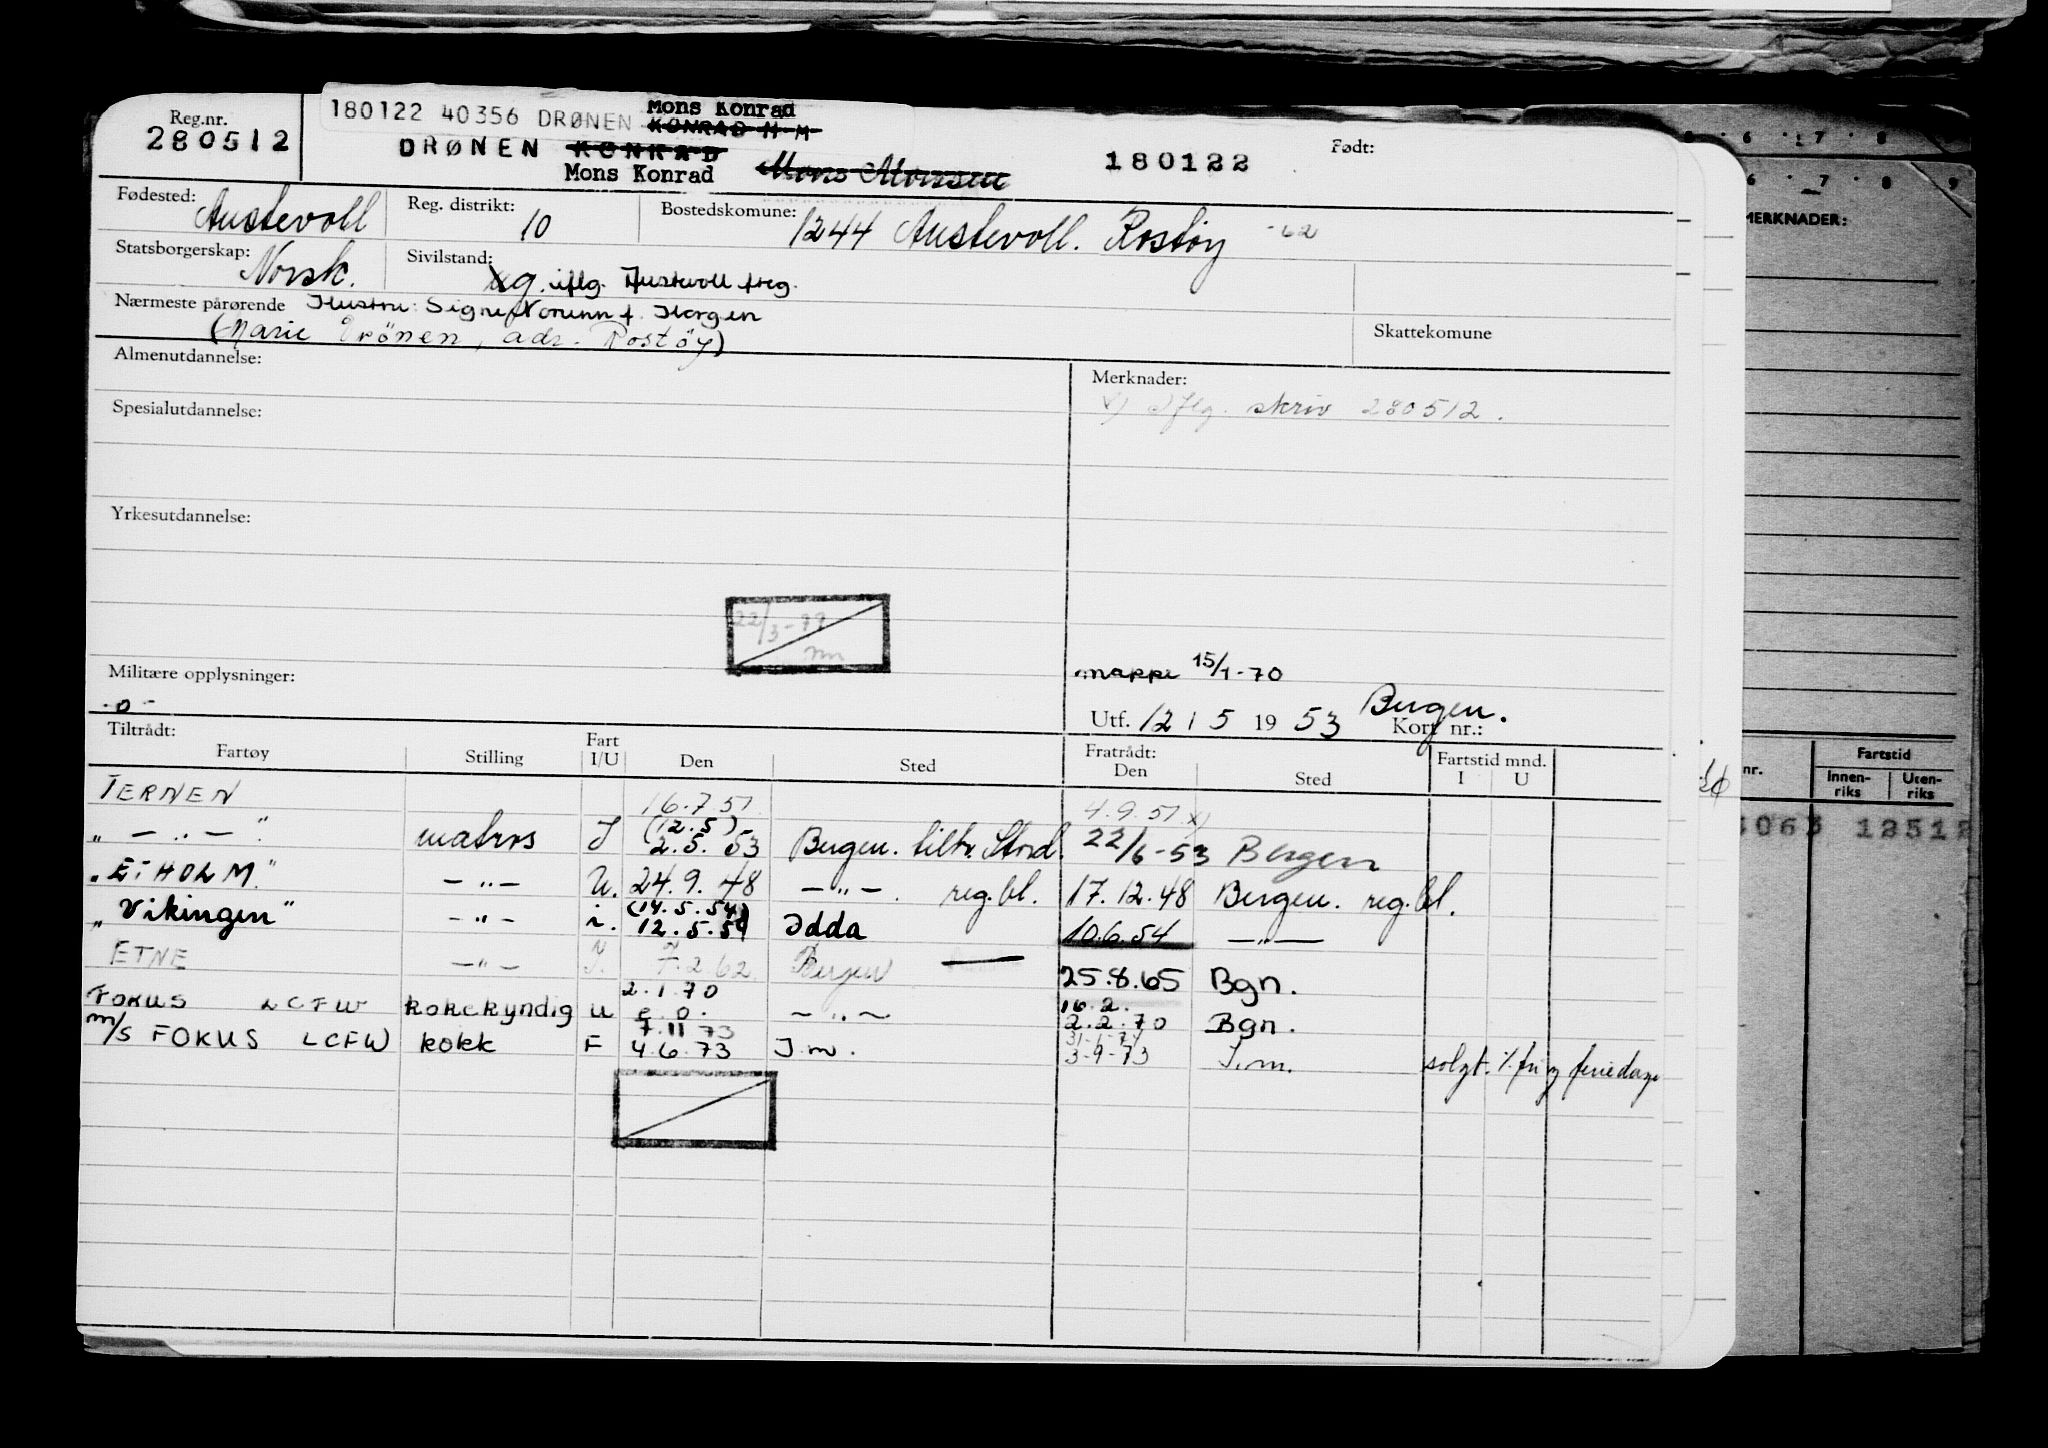 Reg.nr.
280512
180122 40356 DRØNEN Mons Konrad
KONRAD M M
DRØNEN KONRAD Mons Monsen 180122 Født:
Mons Konrad
Fødested: Austevoll Reg. distrikt: 10 Bostedskomune: 1244 Austevoll. Rostøy -62
Statsborgerskap: Norsk. Sivilstand: g. iflg. Austevoll freg.
Nærmeste pårørende Hustru: Signe Norunn f. Horgen
(Marie Drönen, adr. Rostöy) Skattekomune
Almenutdannelse: Merknader:
x) Iflg. skriv 280512.
Spesialutdannelse:
Yrkesutdannelse:
22/3-
Militære opplysninger: mappe 15/1-70
-o- Utf. 12 / 5 19 53 Bergen. Kort nr.:
Tiltrådt: Fratrådt:
Fartøy Stilling Fart I/U Den Sted Den Sted Fartstid mnd. I U
TERNEN 16.7.51 4.9.51 x)
" — " — " matros I (12.5) 2.5.53 Bergen. tiltr. Stord. 22/6-53 Bergen
"ETHOLM." — " — U. 24.9.48 — " — . reg.bl. 17.12.48 Bergen. reg.bl.
"Vikingen" — " — i. (14.5.54) 12.5.54 Odda 10.6.54 — " —
ETNE — " — I. 7.2.62 Bergen 25.8.65 Bgn.
FOKUS LCFW kokekyndig U 2.1.70 e.o. — " — 16.2. 2.2.70 Bgn.
m/s FOKUS LCFW kokk F 7.11 73 4.6.73 I.m. 31-1-74 3-9-73 I.m. solgt.
MERKNADER:
6 7 8
6 7 8 9
nr. Fartstid
Innen-riks Uten-riks
12512